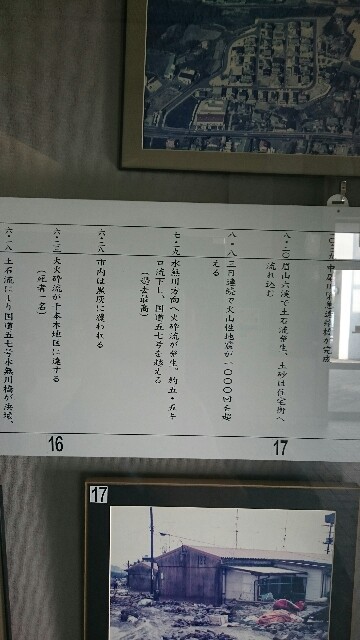 八・二〇 眉山六渓で土石流発生、土砂は住宅街へ
流れ込む
八・八 三日連続で火山性地震が一〇〇〇回を超
える
七・二九 水無川方向へ火砕流が発生。約五・五キ
ロ流下し、国道五七号を越える
(過去最高)
六・二八 市内は黒灰に覆われる
六・二三 火砕流が千本木地区に達する
(死者一名)
六・一八 土石流により国道五七号水無川橋が決壊、
17
16
17